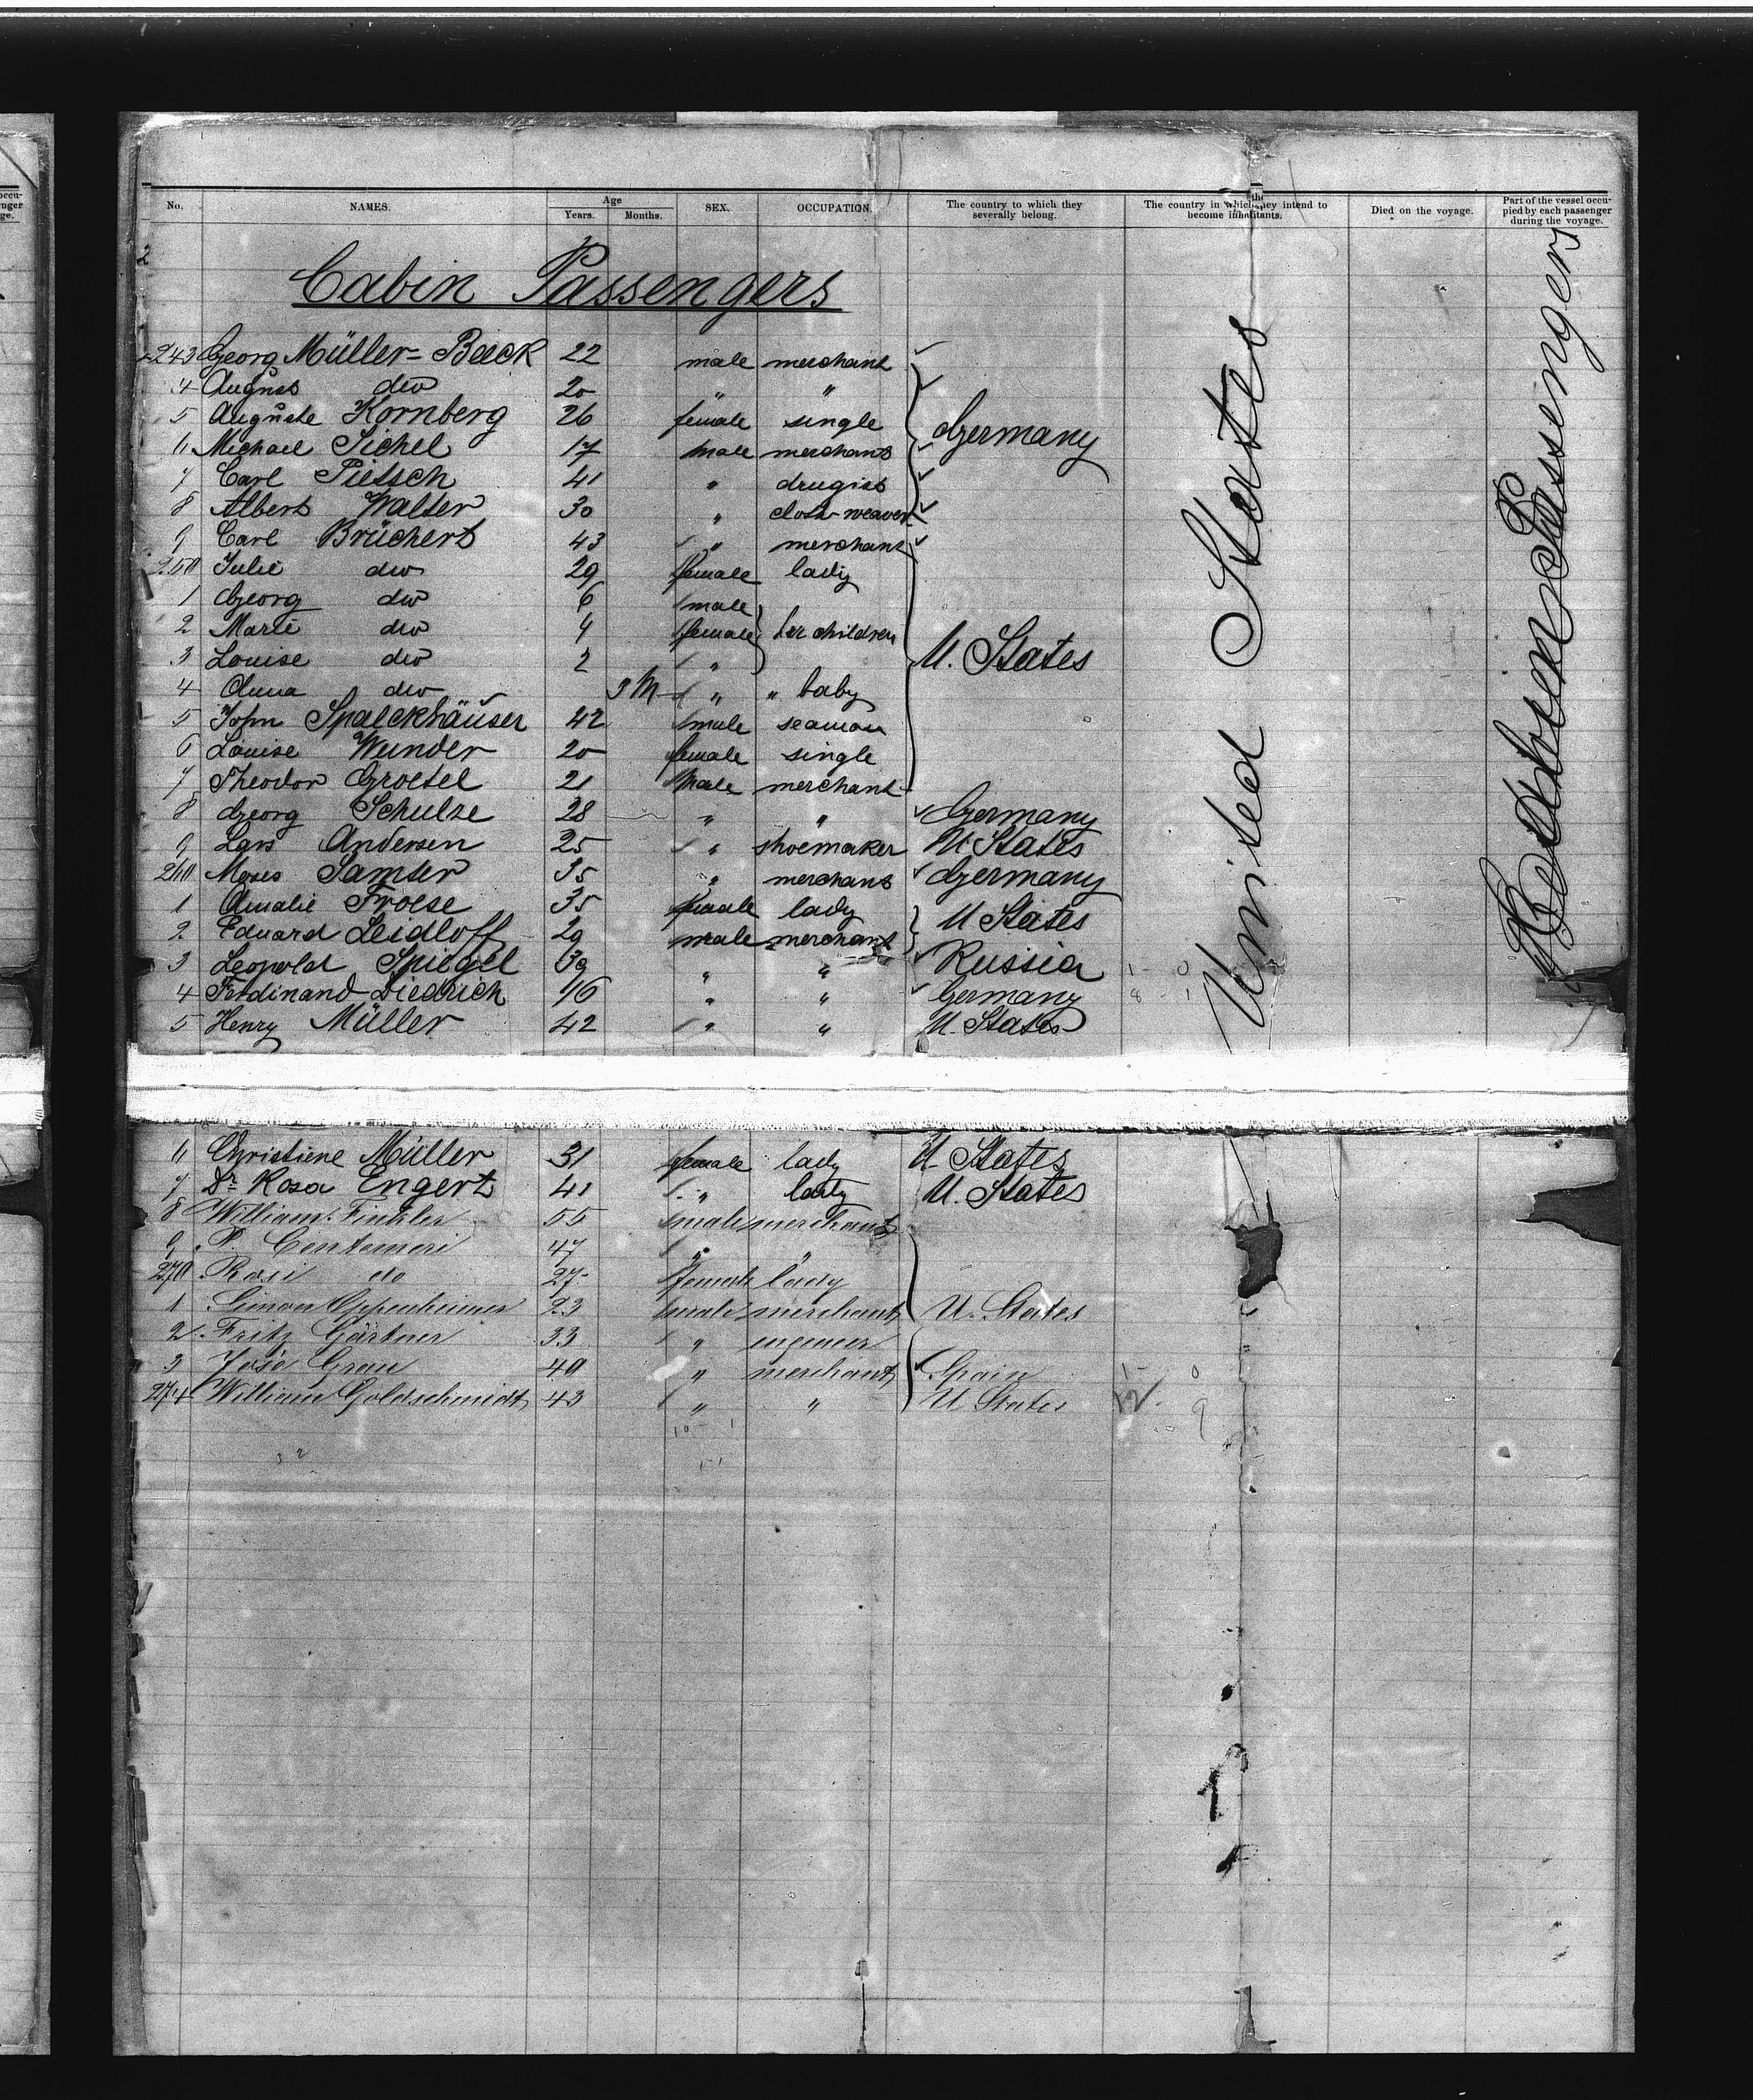 No. NAMES. Age Years. Months. SEX. OCCUPATION. The country to which they severally belong. The country in which they intend to become inhabitants. Died on the voyage. Part of the vessel occupied by each passenger during the voyage.
2
Cabin Passengers
243 Georg Müller-Beeck 22 male merchant
4 August dio 20 " "
5 Auguste Kornberg 26 female single Germany
6 Michael Sichel 17 male merchant
7 Carl Pietsch 41 " drugist
8 Albert Walter 30 " cloth-weaver
9 Carl Brüchert 43 " merchant
250 Julie dio 29 female lady
1 Georg dio 6 male
2 Marie dio 4 female her children
3 Louise dio 2 " U. States
4 Anna dio 3 M " " baby
5 John Spaeckhäuser 42 male seaman
6 Louise Wunder 20 female single
7 Theodor Groesel 21 male merchant
8 Georg Schulze 28 " " Germany
9 Lars Andersen 25 " shoemaker U States
260 Moses Samter 35 " merchant Germany
1 Amalie Froese 35 female lady U States
2 Eduard Leidloff 29 male merchant
3 Leopold Spiegel 39 " " Russia 1 - 0
4 Ferdinand Diedrich 46 " " Germany 8 - 1
5 Henry Müller 42 " " U. States
6 Christiene Müller 31 female lady U. States
7 Dr. Rosa Engert 41 " lady U. States
8 William Finkler 55 male merchant
9 P. Centemeri 47 " "
270 Rosi do 27 female lady
1 Simon Oppenheimer 23 male merchant U. States
2 Fritz Gärtner 33 " engeneer
3 José Grau 40 " merchant Spain 1 - 0
274 William Goldschmidt 43 " " U States 12. 9
10 - 1
United States
Cabin Passengers